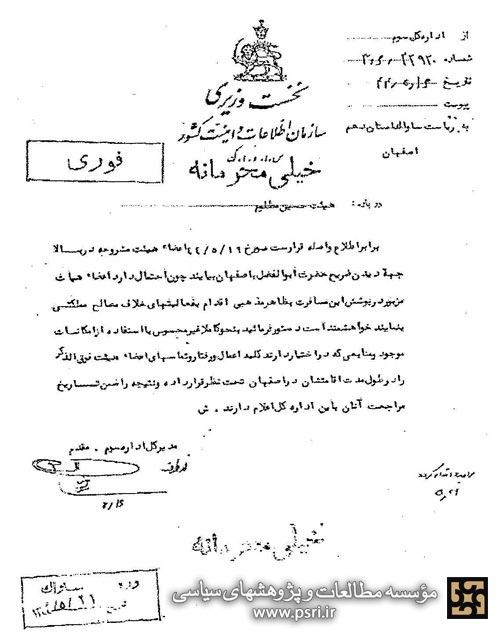 نخست وزیری
سازمان اطلاعات و امنیت کشور
س.ا.و.ا.ک
خیلی محرمانه
فوری
از اداره کل سوم
شماره
تاریخ
پیوست
به ریاست ساواک استان دهم
اصفهان
درباره : هیئت حسین مظلوم
برابر اطلاع واصله قرار است مورخ ۴۴/۵/۱۶ اعضاء هیئت مشروحه در بالا
جهة دیدن ضریح حضرت ابوالفضل باصفهان بیایند چون احتمال دارد اعضاء هیئت
مزبور در پوشش این مسافرت بظاهر مذهبی اقدام بفعالیتهای خلاف مصالح مملکتی
بنمایند خواهشمند است دستور فرمائید بنحو کاملا غیر محسوس با استفاده از امکانات
موجود و منابعی که در اختیار دارند کلیه اعمال و رفتار و تماسهای اعضاء هیئت فوق الذکر
را در طول مدت اقامتشان در اصفهان تحت نظر قرار داده و نتیجه را ضمن تاریخ
مراجعت آنان باین اداره کل اعلام دارند . ش
مدیر کل اداره سوم . مقدم
از طرف
خیلی محرمانه
مؤسسه مطالعات و پژوهشهای سیاسی
www.psri.ir